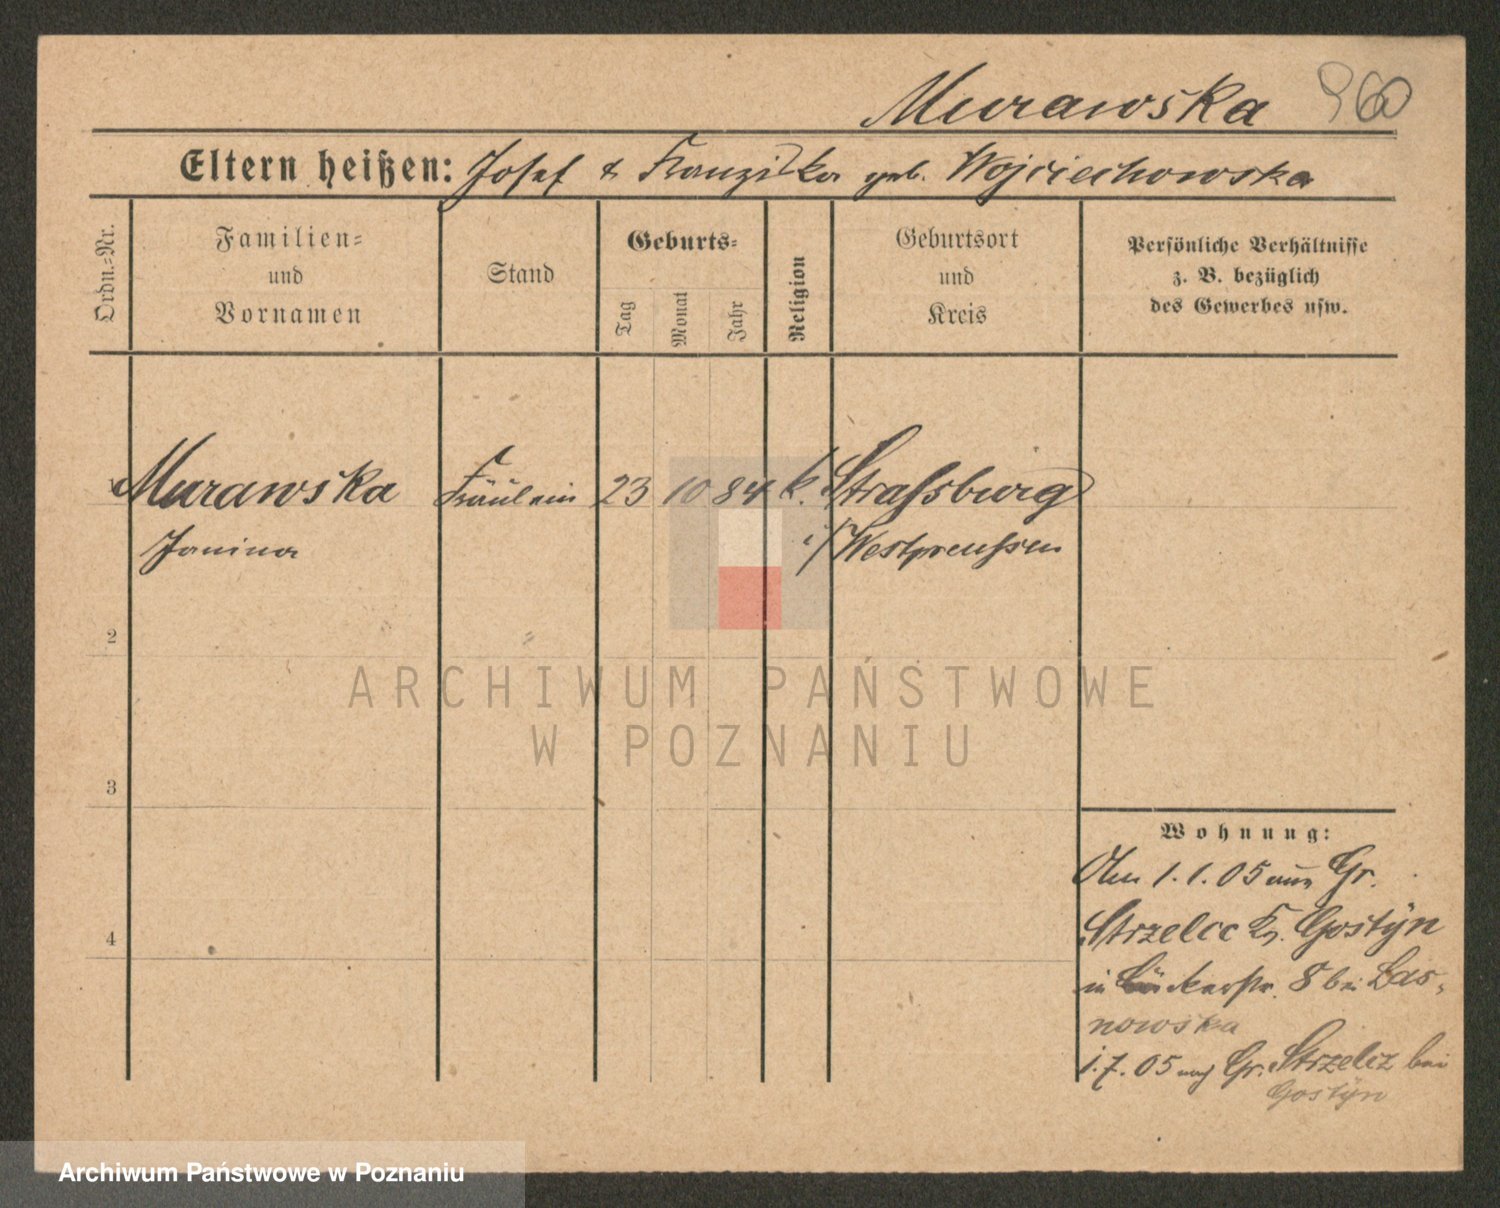 Murawska 960
Eltern heißen: Josef & Franziska geb. Wojciechowska
Ordn.-Nr.
Familien-
und
Vornamen
Stand
Geburts-
Tag
Monat
Jahr
Religion
Geburtsort
und
Kreis
Persönliche Verhältnisse
z. B. bezüglich
des Gewerbes usw.
1 Murawska Fräulein 23 10 84 k. Strassburg
Janina i/ Westpreussen
2
ARCHIWUM PAŃSTWOWE
W POZNANIU
3
Wohnung:
Am 1.1.05 aus Gr.
Strzelce Kr. Gostÿn
4
in Bäckerstr. 8 bei Las-
nowska
1.7.05 nach Gr. Strzelcz bei
Gostÿn
Archiwum Państwowe w Poznaniu